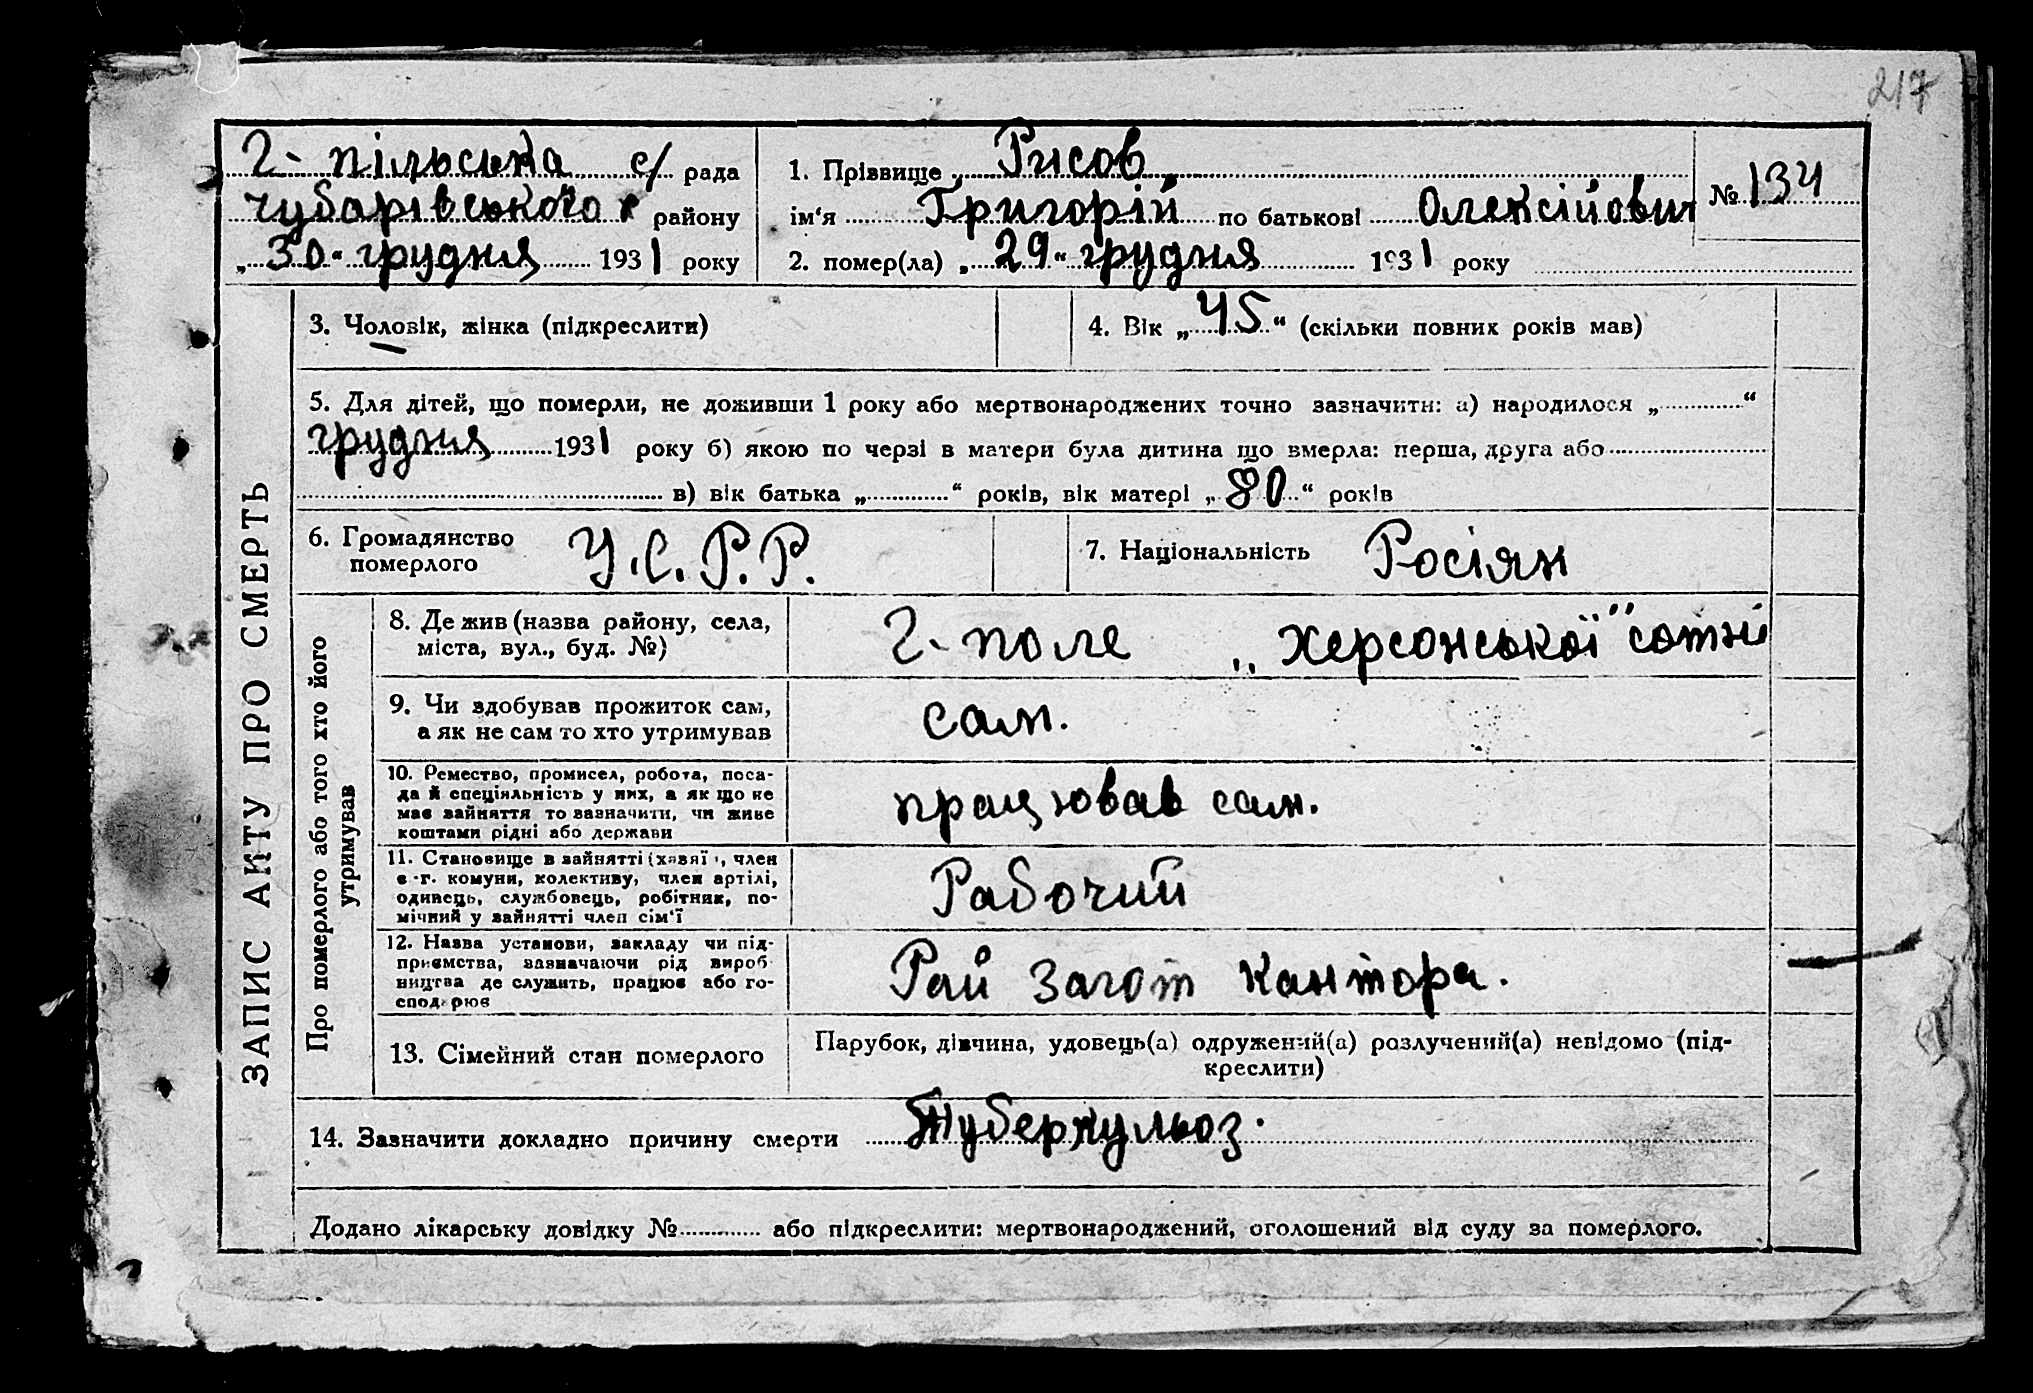 217
Г-пільська с/ рада
Чубарівського району
„30“ грудня 1931 року
1. Прізвище Рисов
ім‘я Григорій по батькові Олексійович
2. помер(ла) „29“ грудня 1931 року
№ 134
ЗАПИС АКТУ ПРО СМЕРТЬ
3. Чоловік, жінка (підкреслити)
4. Вік „45“ (скільки повних років мав)
5. Для дітей, що померли, не доживши 1 року або мертвонароджених точно зазначити: а) народилося „ “
грудня 1931 року б) якою по черзі в матери була дитина що вмерла: перша, друга або
в) вік батька „ “ років, вік матері „80“ років
6. Громадянство
померлого
У.С.Р.Р.
7. Національність Росіян
Про померлого або того хто його
утримував
8. Де жив (назва району, села,
міста, вул., буд. №)
Г-поле „Херсонської“ сотні
9. Чи здобував прожиток сам,
а як не сам то хто утримував
сам.
10. Ремество, промисел, робота, поса-
да й спеціяльність у них, а як що не
має зайняття то зазначити, чи живе
коштами рідні або держави
працював сам.
11. Становище в зайнятті (хазяї , член
с.-г. комуни, колективу, член артілі,
одинець, службовець, робітник, по-
мічний у зайнятті член сім‘ї
Рабочий
12. Назва установи, закладу чи під-
приємства, зазначаючи рід вироб-
ництва де служить, працює або го-
сподарює
Рай Загот Кантора.
13. Сімейний стан померлого
Парубок, дівчина, удовець(а) одружений(а) розлучений(а) невідомо (під-
креслити)
14. Зазначити докладно причину смерти Туберкульоз.
Додано лікарську довідку № або підкреслити: мертвонароджений, оголошений від суду за померлого.